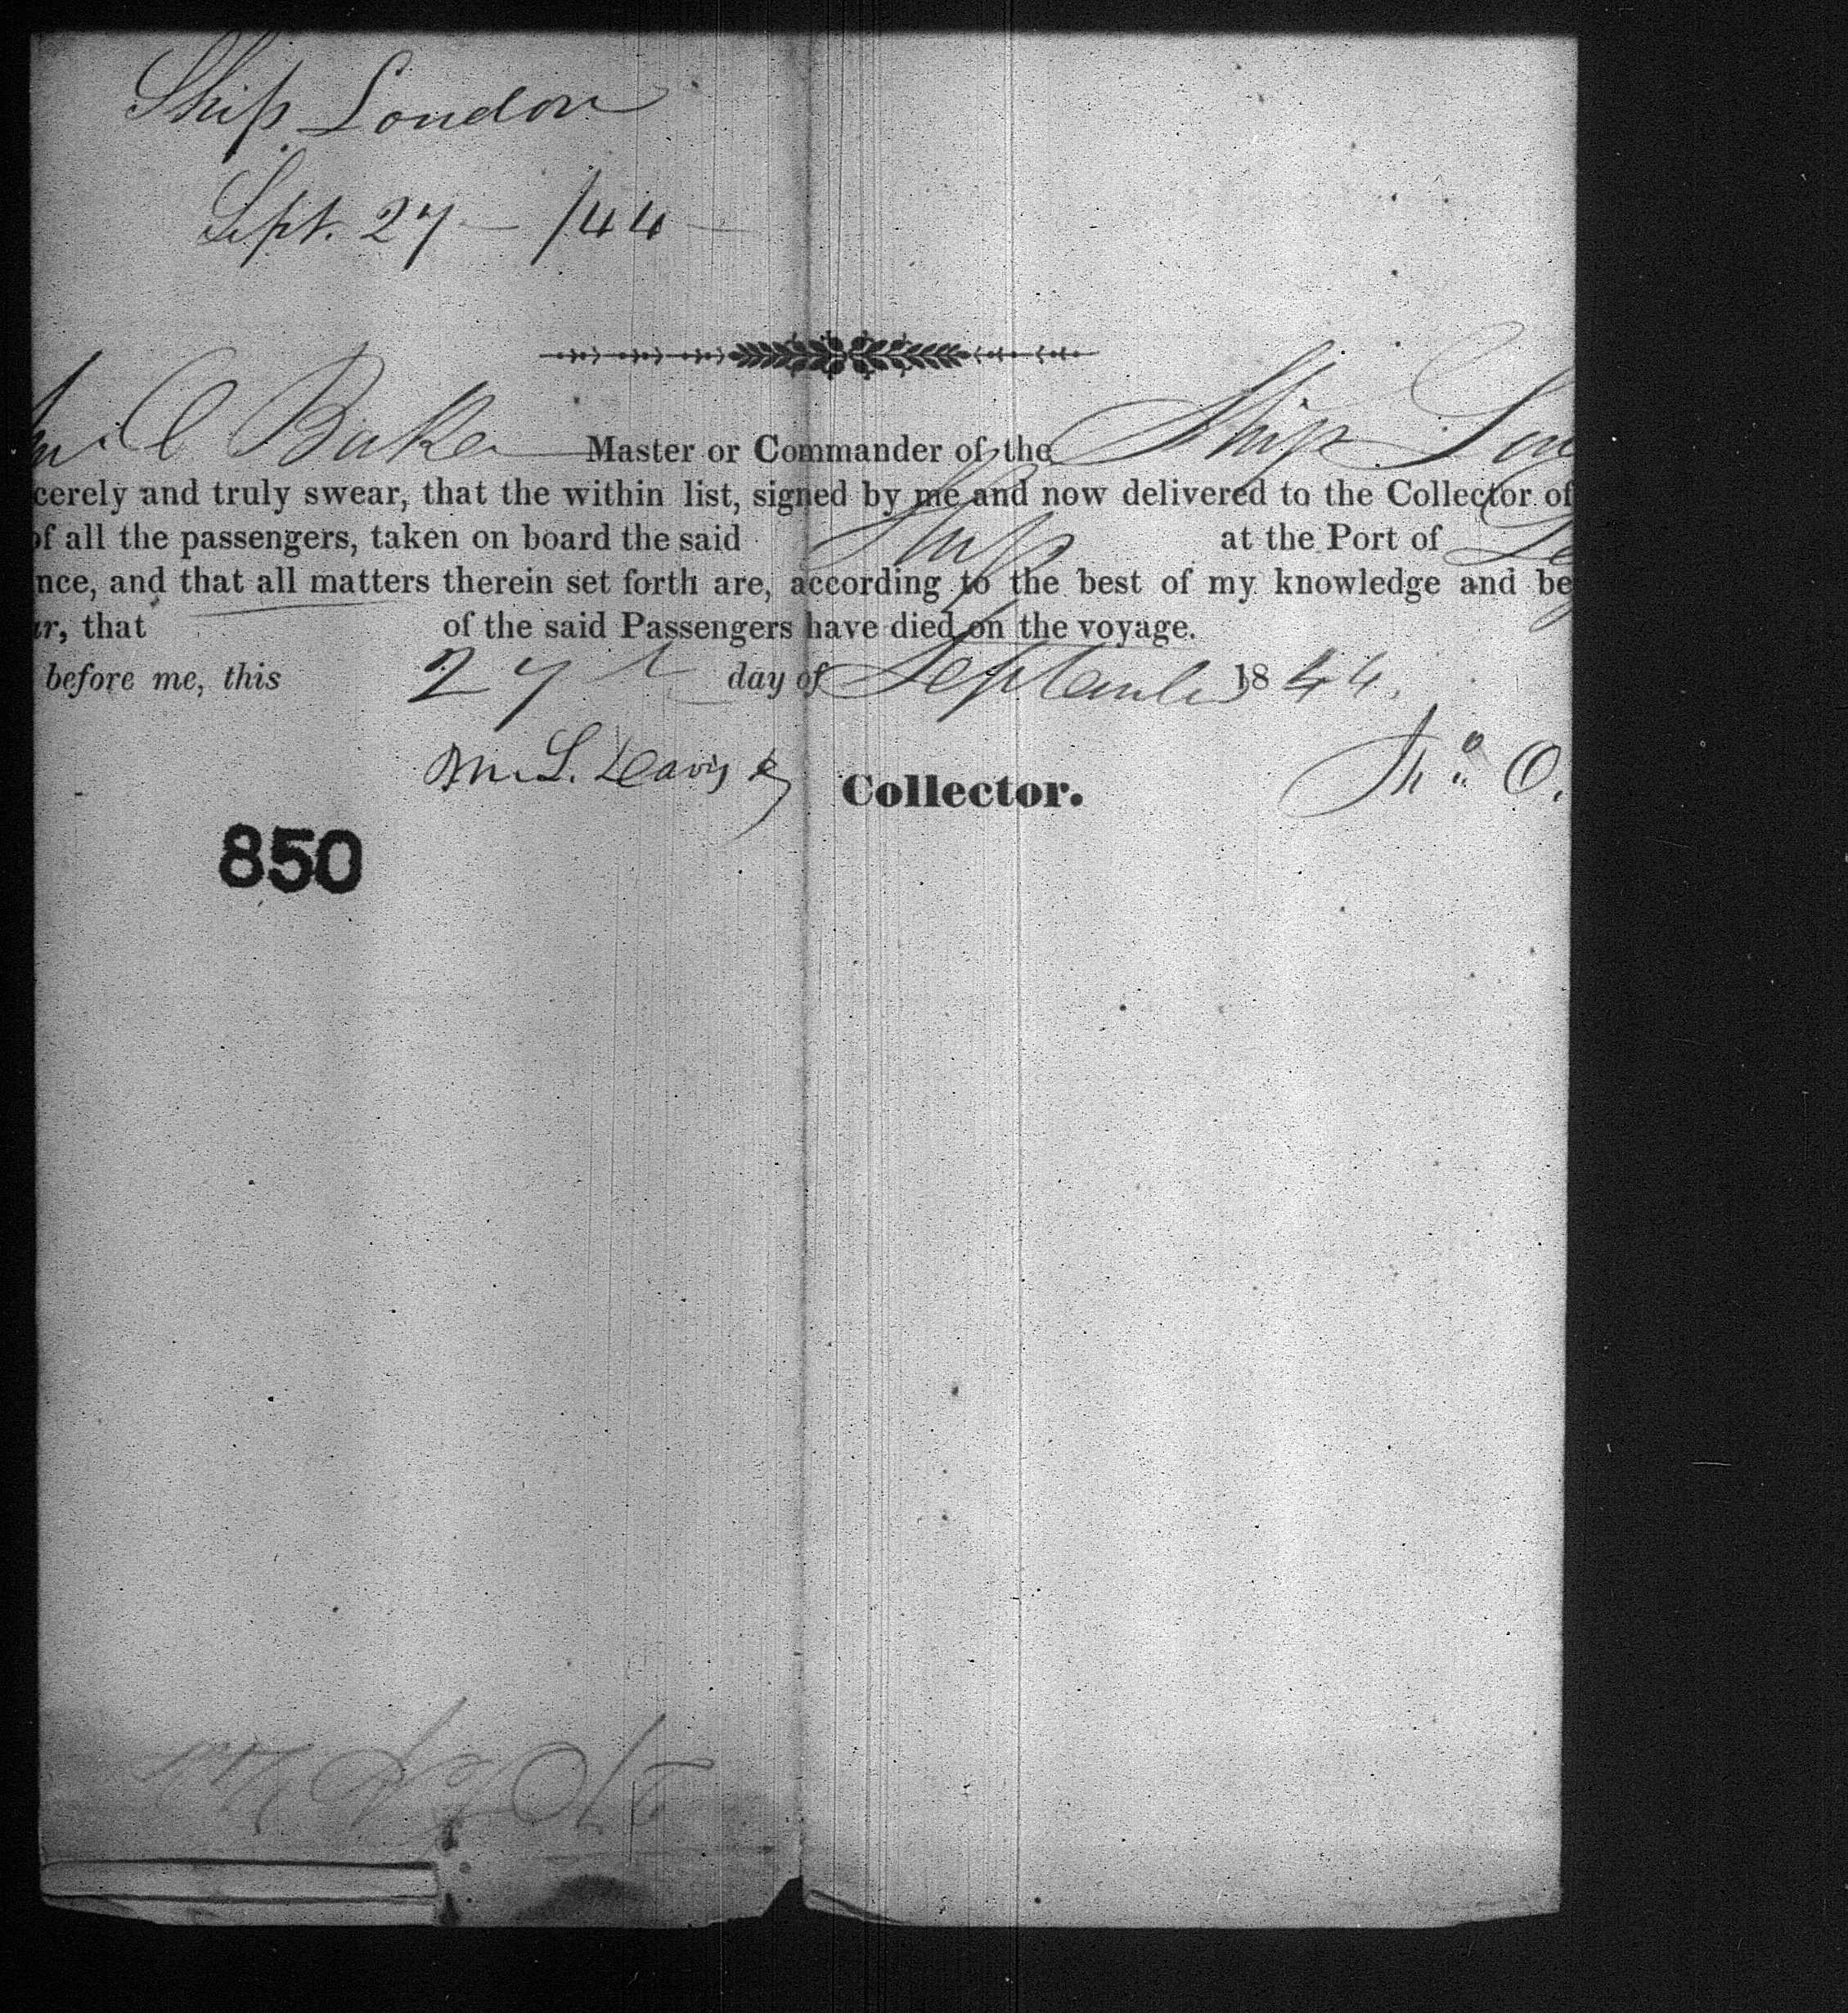 Ship London
Sept. 27 - /44
C Baker Master or Commander of the Ship Lon
cerely and truly swear, that the within list, signed by me and now delivered to the Collector of
of all the passengers, taken on board the said Ship at the Port of
nce, and that all matters therein set forth are, according to the best of my knowledge and be
r, that of the said Passengers have died on the voyage.
before me, this 27 day of September 1844.
L. Davis Collector. O.
850